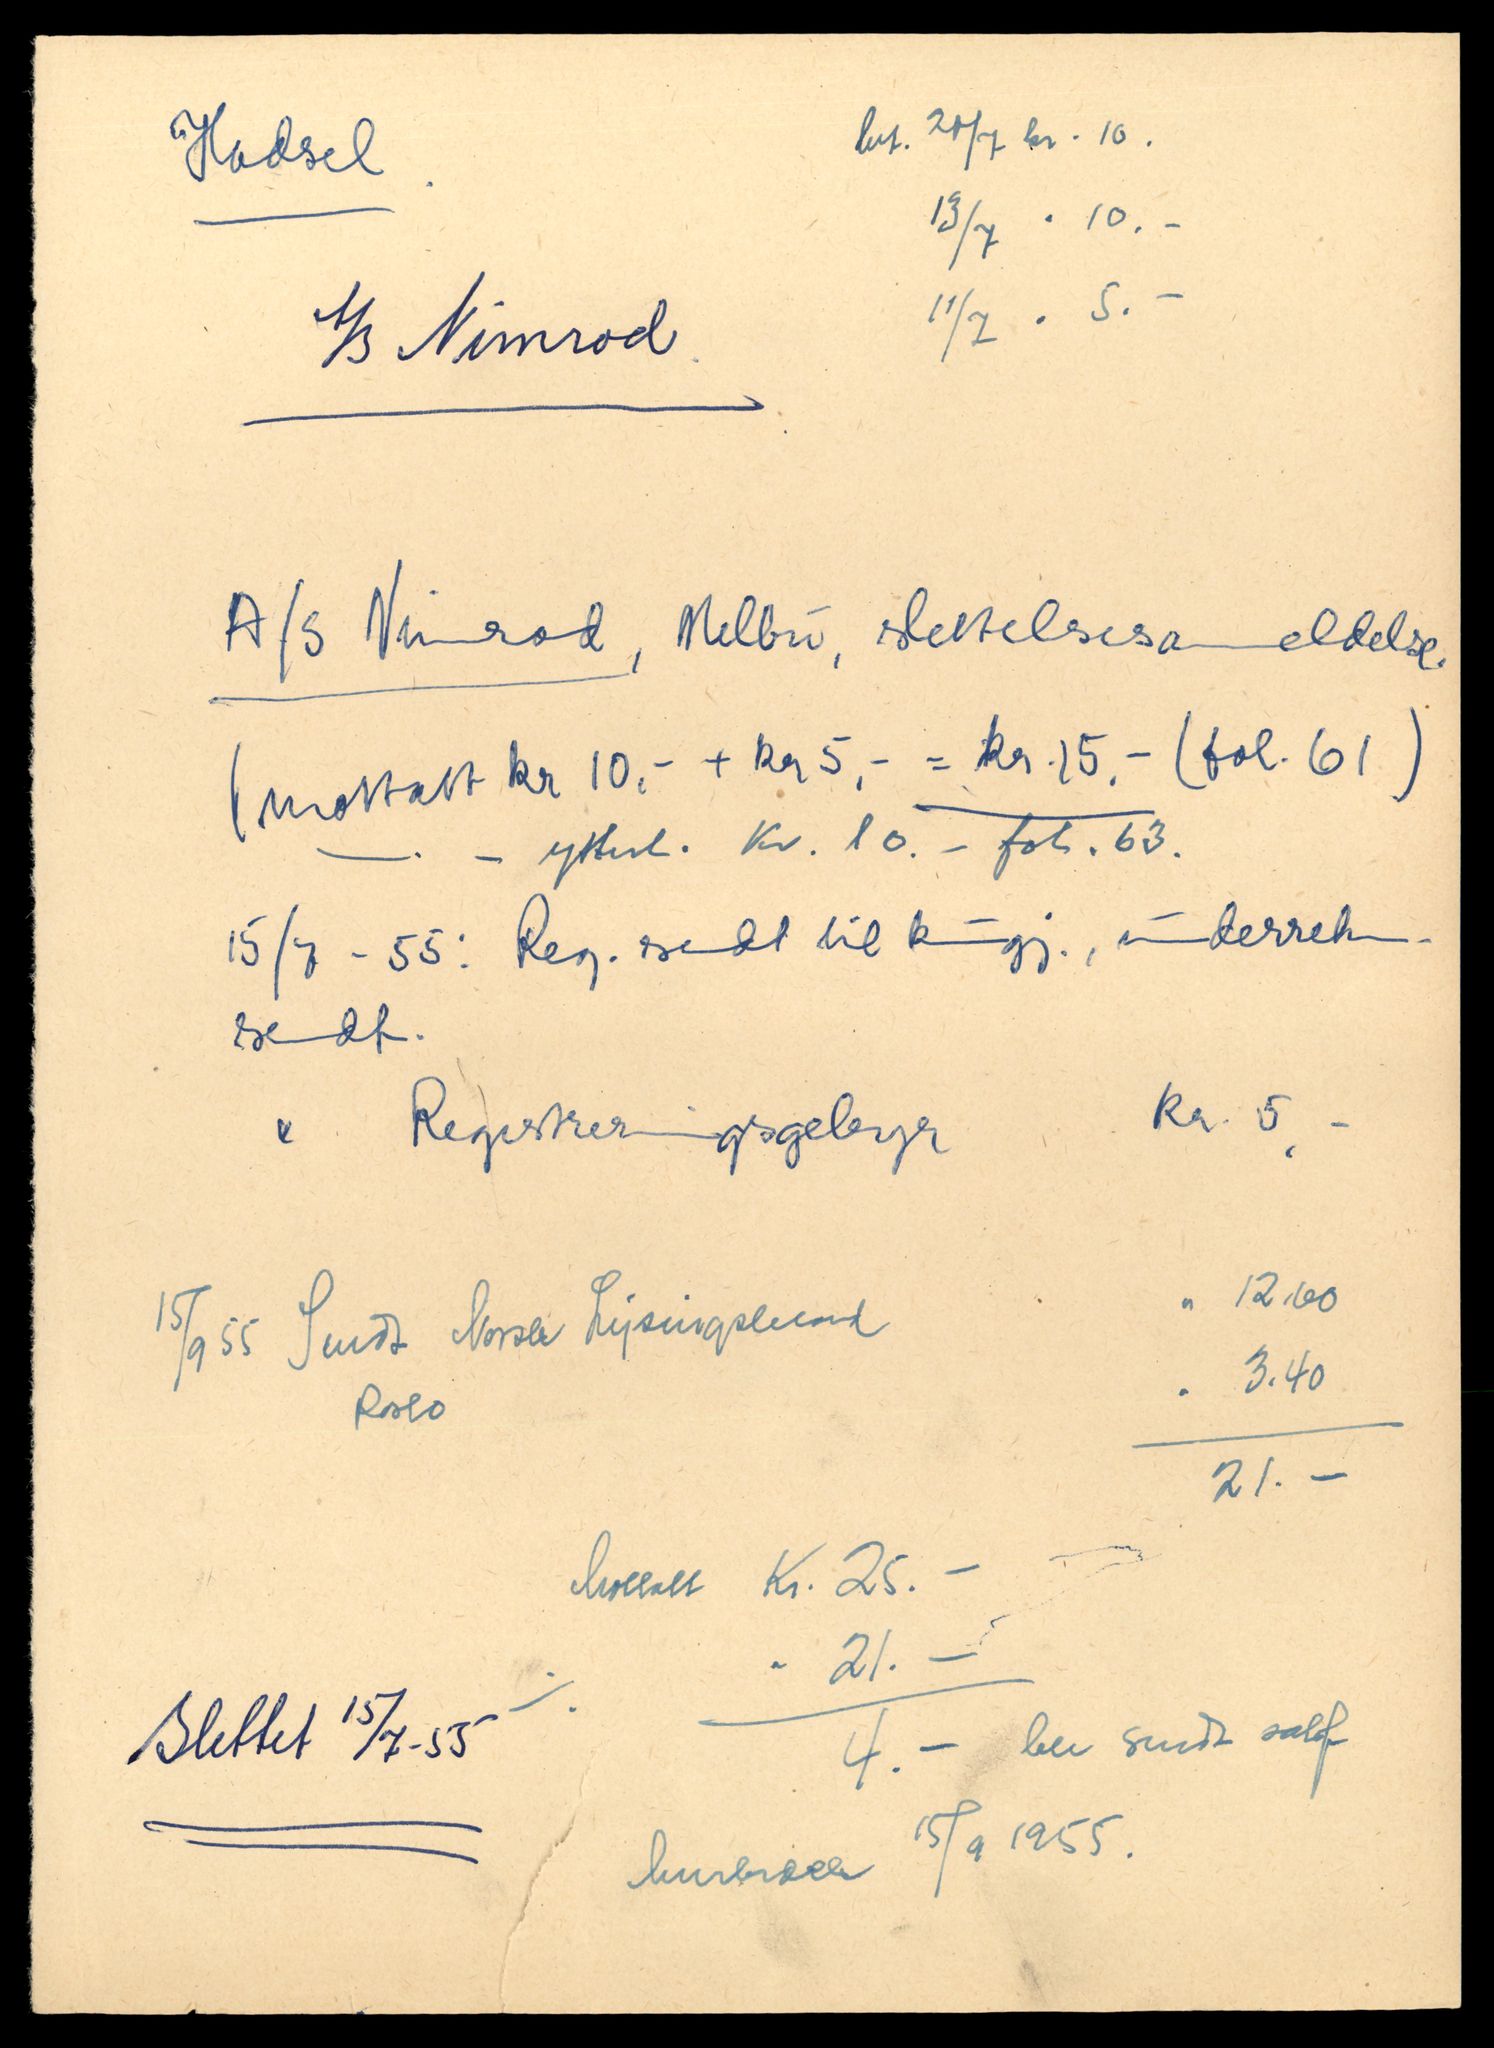 Hadsel.
A/S Nimrod.
20/7 kr. 10.
13/7 " 10.-
11/7 " 5.-
A/S Nimrod, Melbu, slettelsesanmeldelse.
(mottatt kr 10,- + kr 5,- = kr. 15,- (fol. 61)
— " — ytterl. Kr. 10.- fol. 63.
15/7 - 55: Reg. sendt til kungj., underretn.
sendt.
" Registreringsgebyr kr. 5,-
15/9 55 Sendt Norsk Lysingsblad " 12.60
Porto " 3.40
21.-
Mottatt Kr. 25.-
" 21.-
4.- ble sendt
15/9 1955.
Slettet 15/7-55